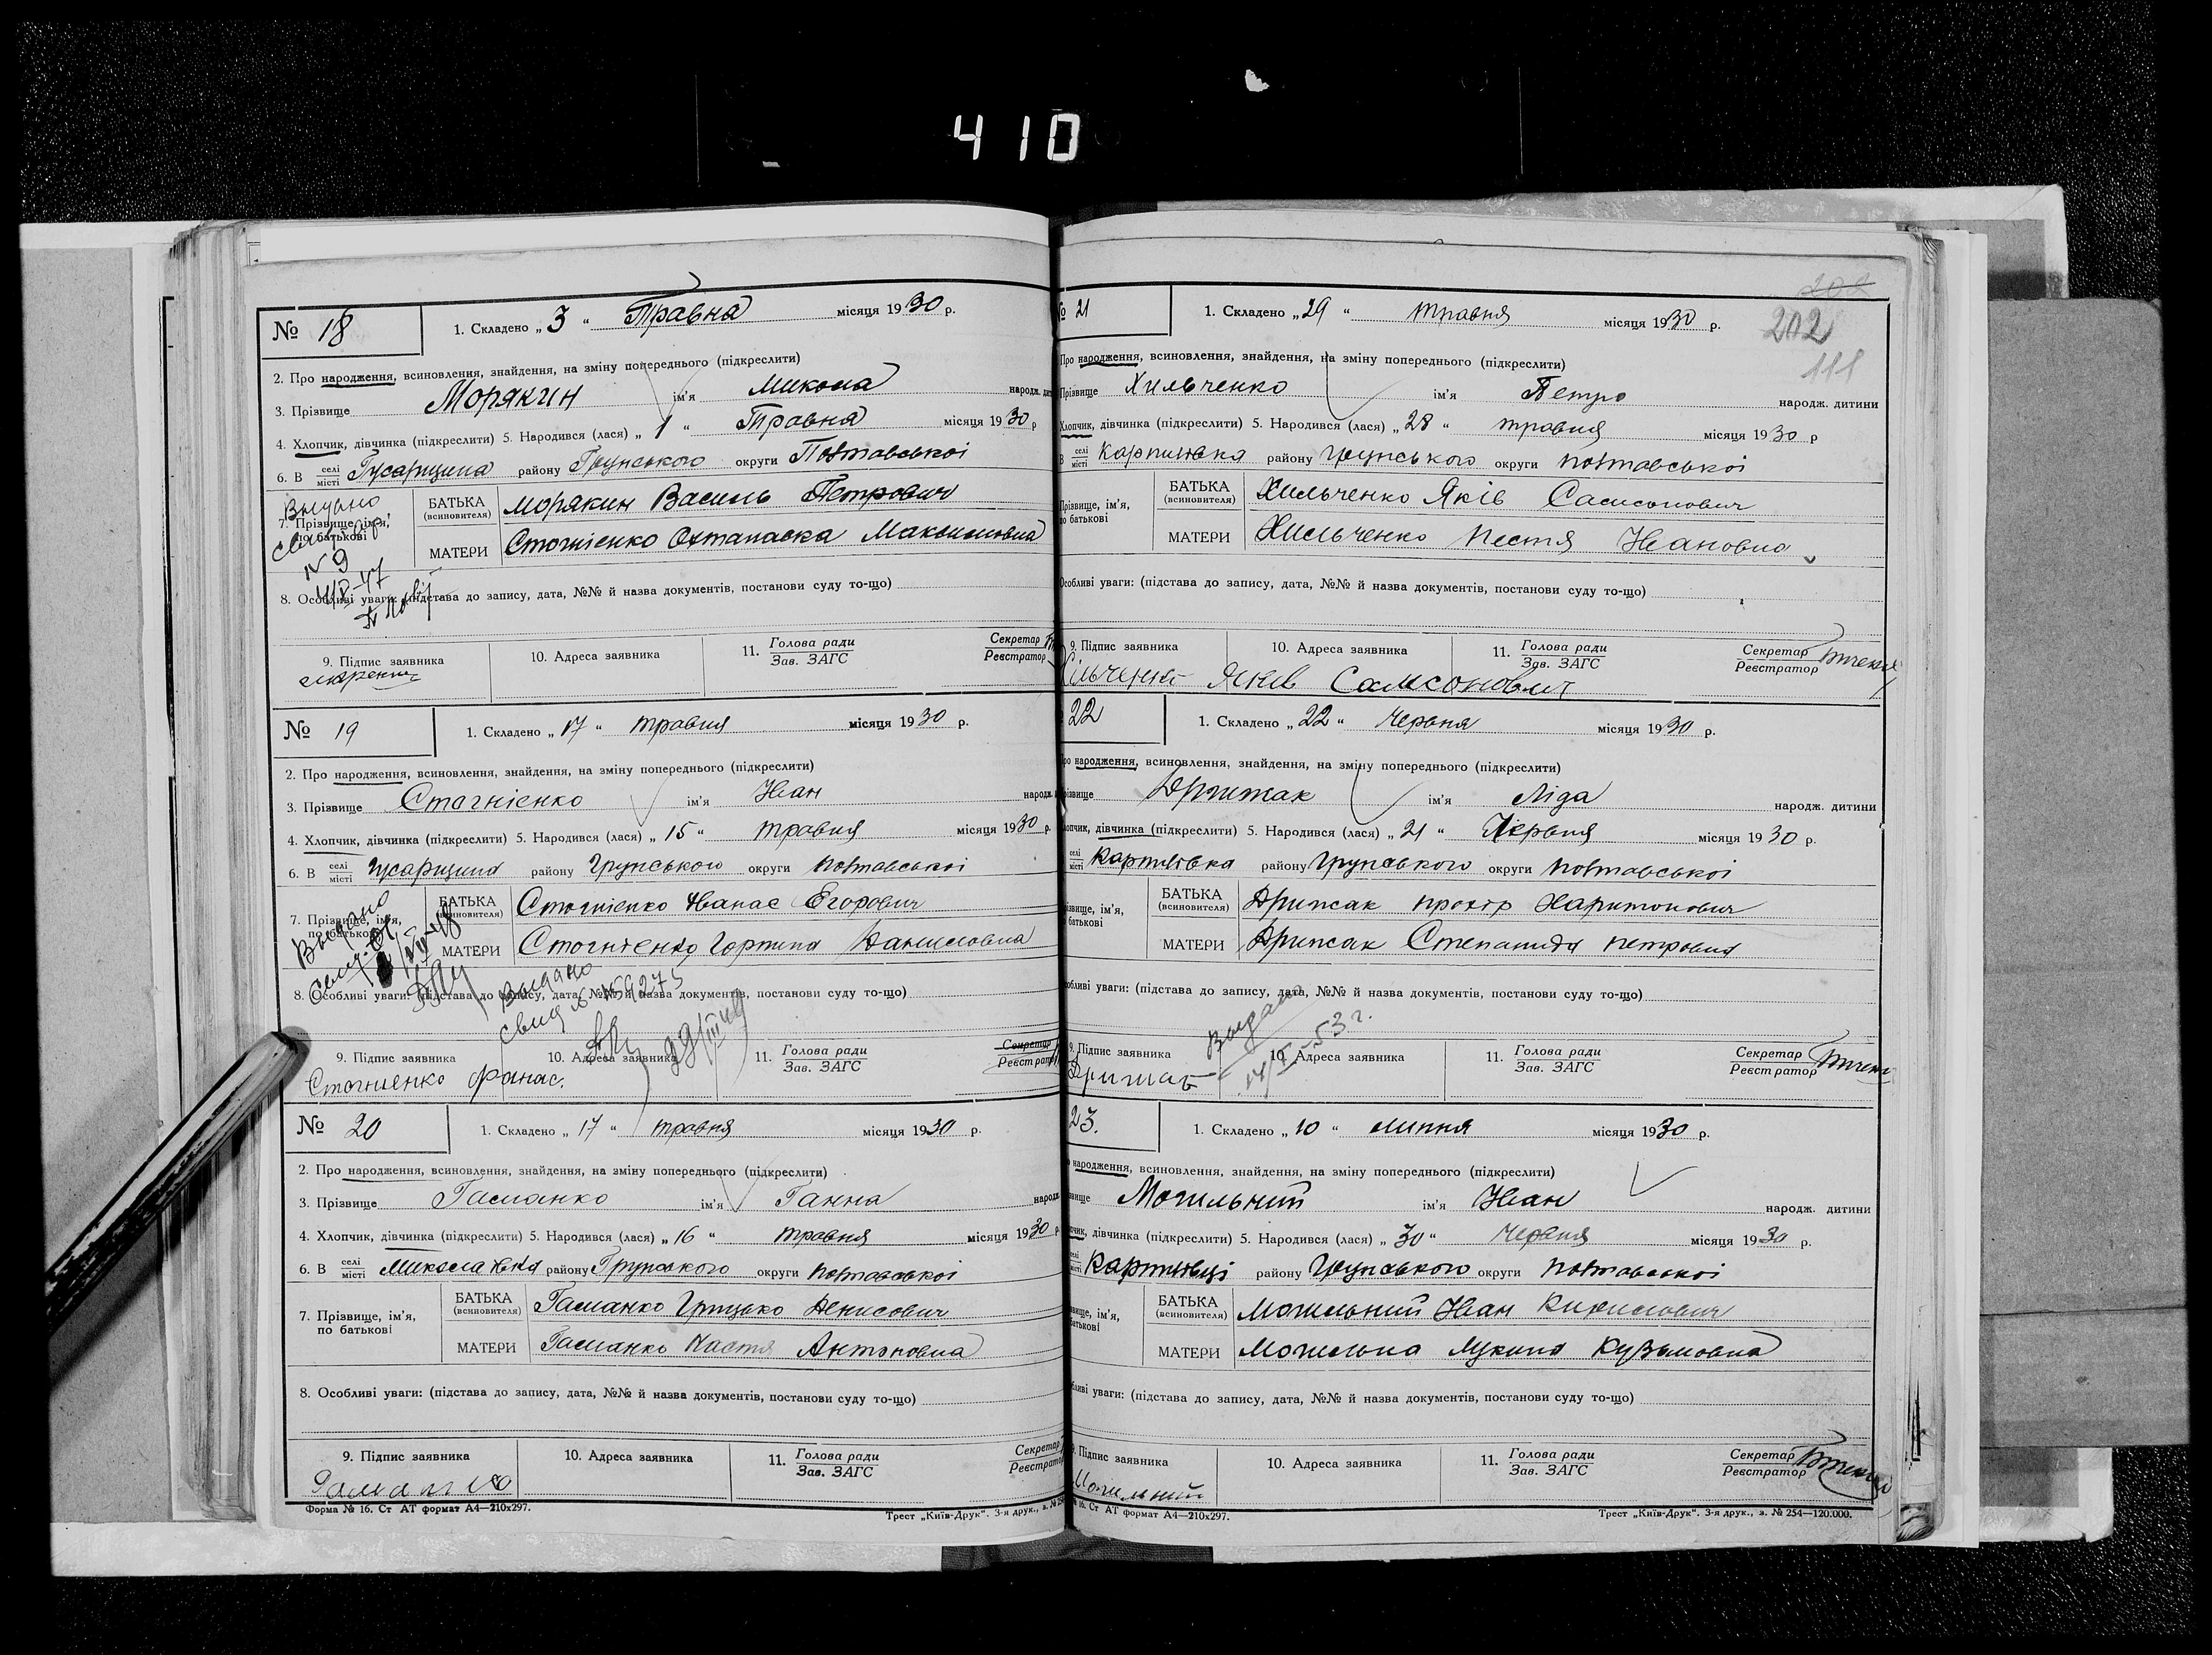 410
№ 18
1. Складено „ 3 “ Травна місяця 1930 р.
2. Про народження, всиновлення, знайдення, на зміну попереднього (підкреслити)
3. Прізвище Морякин ім'я Микола народж.
4. Хлопчик, дівчинка (підкреслити) 5. Народився (лася) „ 1 “ Травня місяця 1930 р
6. В селі місті Гусарщина району Грунського округи Полтавської
Выдано
7. Прізвище, ім'я, по батькові
БАТЬКА (всиновителя) Морякин Василь Петрович
№ 9
МАТЕРИ Стогнієнко Охтанаска Максимовна
8. Особливі уваги: (підстава до запису, дата, №№ й назва документів, постанови суду то-що)
9. Підпис заявника
10. Адреса заявника
11. Голова ради Зав. ЗАГС
Секретар Реєстратор
№ 19
1. Складено „ 17 “ травня місяця 1930 р.
2. Про народження, всиновлення, знайдення, на зміну попереднього (підкреслити)
3. Прізвище Стогнієнко ім'я Іван народж.
4. Хлопчик, дівчинка (підкреслити) 5. Народився (лася) „ 15 “ травня місяця 1930 р.
6. В селі місті Гусарщина району Грунського округи полтавської
7. Прізвище, ім'я, по батькові
БАТЬКА (всиновителя) Стогнієнко Панас Егорович
Выдано
МАТЕРИ Стогнієнко Горпина Даниловна
8. Особливі уваги: (підстава до запису, дата, №№ й назва документів, постанови суду то-що)
Выдано
29/III 49
9. Підпис заявника
10. Адреса заявника
11. Голова ради Зав. ЗАГС
Секретар Реєстратор
Стогниенко Фанас.
№ 20
1. Складено „ 17 “ травня місяця 1930 р.
2. Про народження, всиновлення, знайдення, на зміну попереднього (підкреслити)
3. Прізвище Гаманко ім'я Ганна народж.
4. Хлопчик, дівчинка (підкреслити) 5. Народився (лася) „ 16 “ травня місяця 1930 р.
6. В селі місті Миколаївка району Грунського округи полтавської
7. Прізвище, ім'я, по батькові
БАТЬКА (всиновителя) Гаманко Грицько Денисович
МАТЕРИ Гаманко Настя Антоновна
8. Особливі уваги: (підстава до запису, дата, №№ й назва документів, постанови суду то-що)
9. Підпис заявника
10. Адреса заявника
11. Голова ради Зав. ЗАГС
Секретар Реєстратор
Гаманко
Форма № 16. Ст АТ формат А4—210х297.
Трест „Київ-Друк“. 3-я друк., з. №
202
111
№ 21
1. Складено „ 29 “ травня місяця 1930 р.
Про народження, всиновлення, знайдення, на зміну попереднього (підкреслити)
Прізвище Хильченко ім'я Петро народж. дитини
Хлопчик, дівчинка (підкреслити) 5. Народився (лася) „ 28 “ травня місяця 1930 р
В селі місті Карпилівка району Грунського округи полтавської
Прізвище, ім'я, по батькові
БАТЬКА (всиновителя) Хильченко Яків Самсонович
МАТЕРИ Хильченко Нестя Івановна
Особливі уваги: (підстава до запису, дата, №№ й назва документів, постанови суду то-що)
9. Підпис заявника
10. Адреса заявника
11. Голова ради Зав. ЗАГС
Секретар Реєстратор
Хільченко Яков Самсонович
22
1. Складено „ 22 “ Червня місяця 1930 р.
Про народження, всиновлення, знайдення, на зміну попереднього (підкреслити)
Прізвище Дрижак ім'я Ліда народж. дитини
хлопчик, дівчинка (підкреслити) 5. Народився (лася) „ 21 “ Червня місяця 1930 р.
селі місті Карпилівка району Грунського округи полтавської
Прізвище, ім'я, по батькові
БАТЬКА (всиновителя) Дрижак Прохір Харитонович
МАТЕРИ Дрижак Степанида петровна
Особливі уваги: (підстава до запису, дата, №№ й назва документів, постанови суду то-що)
Выдано
53 г.
9. Підпис заявника
10. Адреса заявника
11. Голова ради Зав. ЗАГС
Секретар Реєстратор
Дрижак
23.
1. Складено „ 10 “ липня місяця 1930 р.
народження, всиновлення, знайдення, на зміну попереднього (підкреслити)
Могильний ім'я Іван народж. дитини
дівчинка (підкреслити) 5. Народився (лася) „ 30 “ Червня місяця 1930 р.
селі місті Карпилівці району Грунського округи полтавської
БАТЬКА (всиновителя) Могильний Іван Кирилович
МАТЕРИ Могильна Лукина Кузьмовна
уваги: (підстава до запису, дата, №№ й назва документів, постанови суду то-що)
Підпис заявника
10. Адреса заявника
11. Голова ради Зав. ЗАГС
Секретар Реєстратор
Могильний
16. Ст АТ формат А4—210х297.
Трест „Київ-Друк“. 3-я друк., з. № 254—120.000.